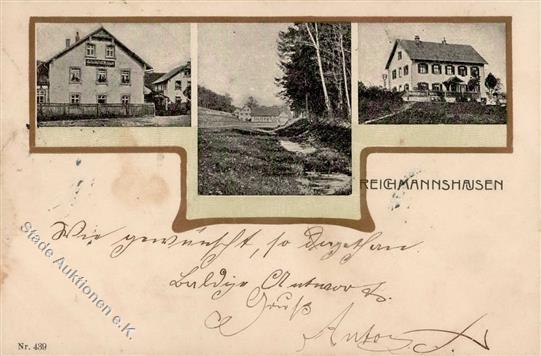 REICHMANNSHAUSEN
Wie gewünscht, so dagethan.
Baldige Antwort.
Gruß
Anton
Stade Auktionen e.K.
Nr. 439